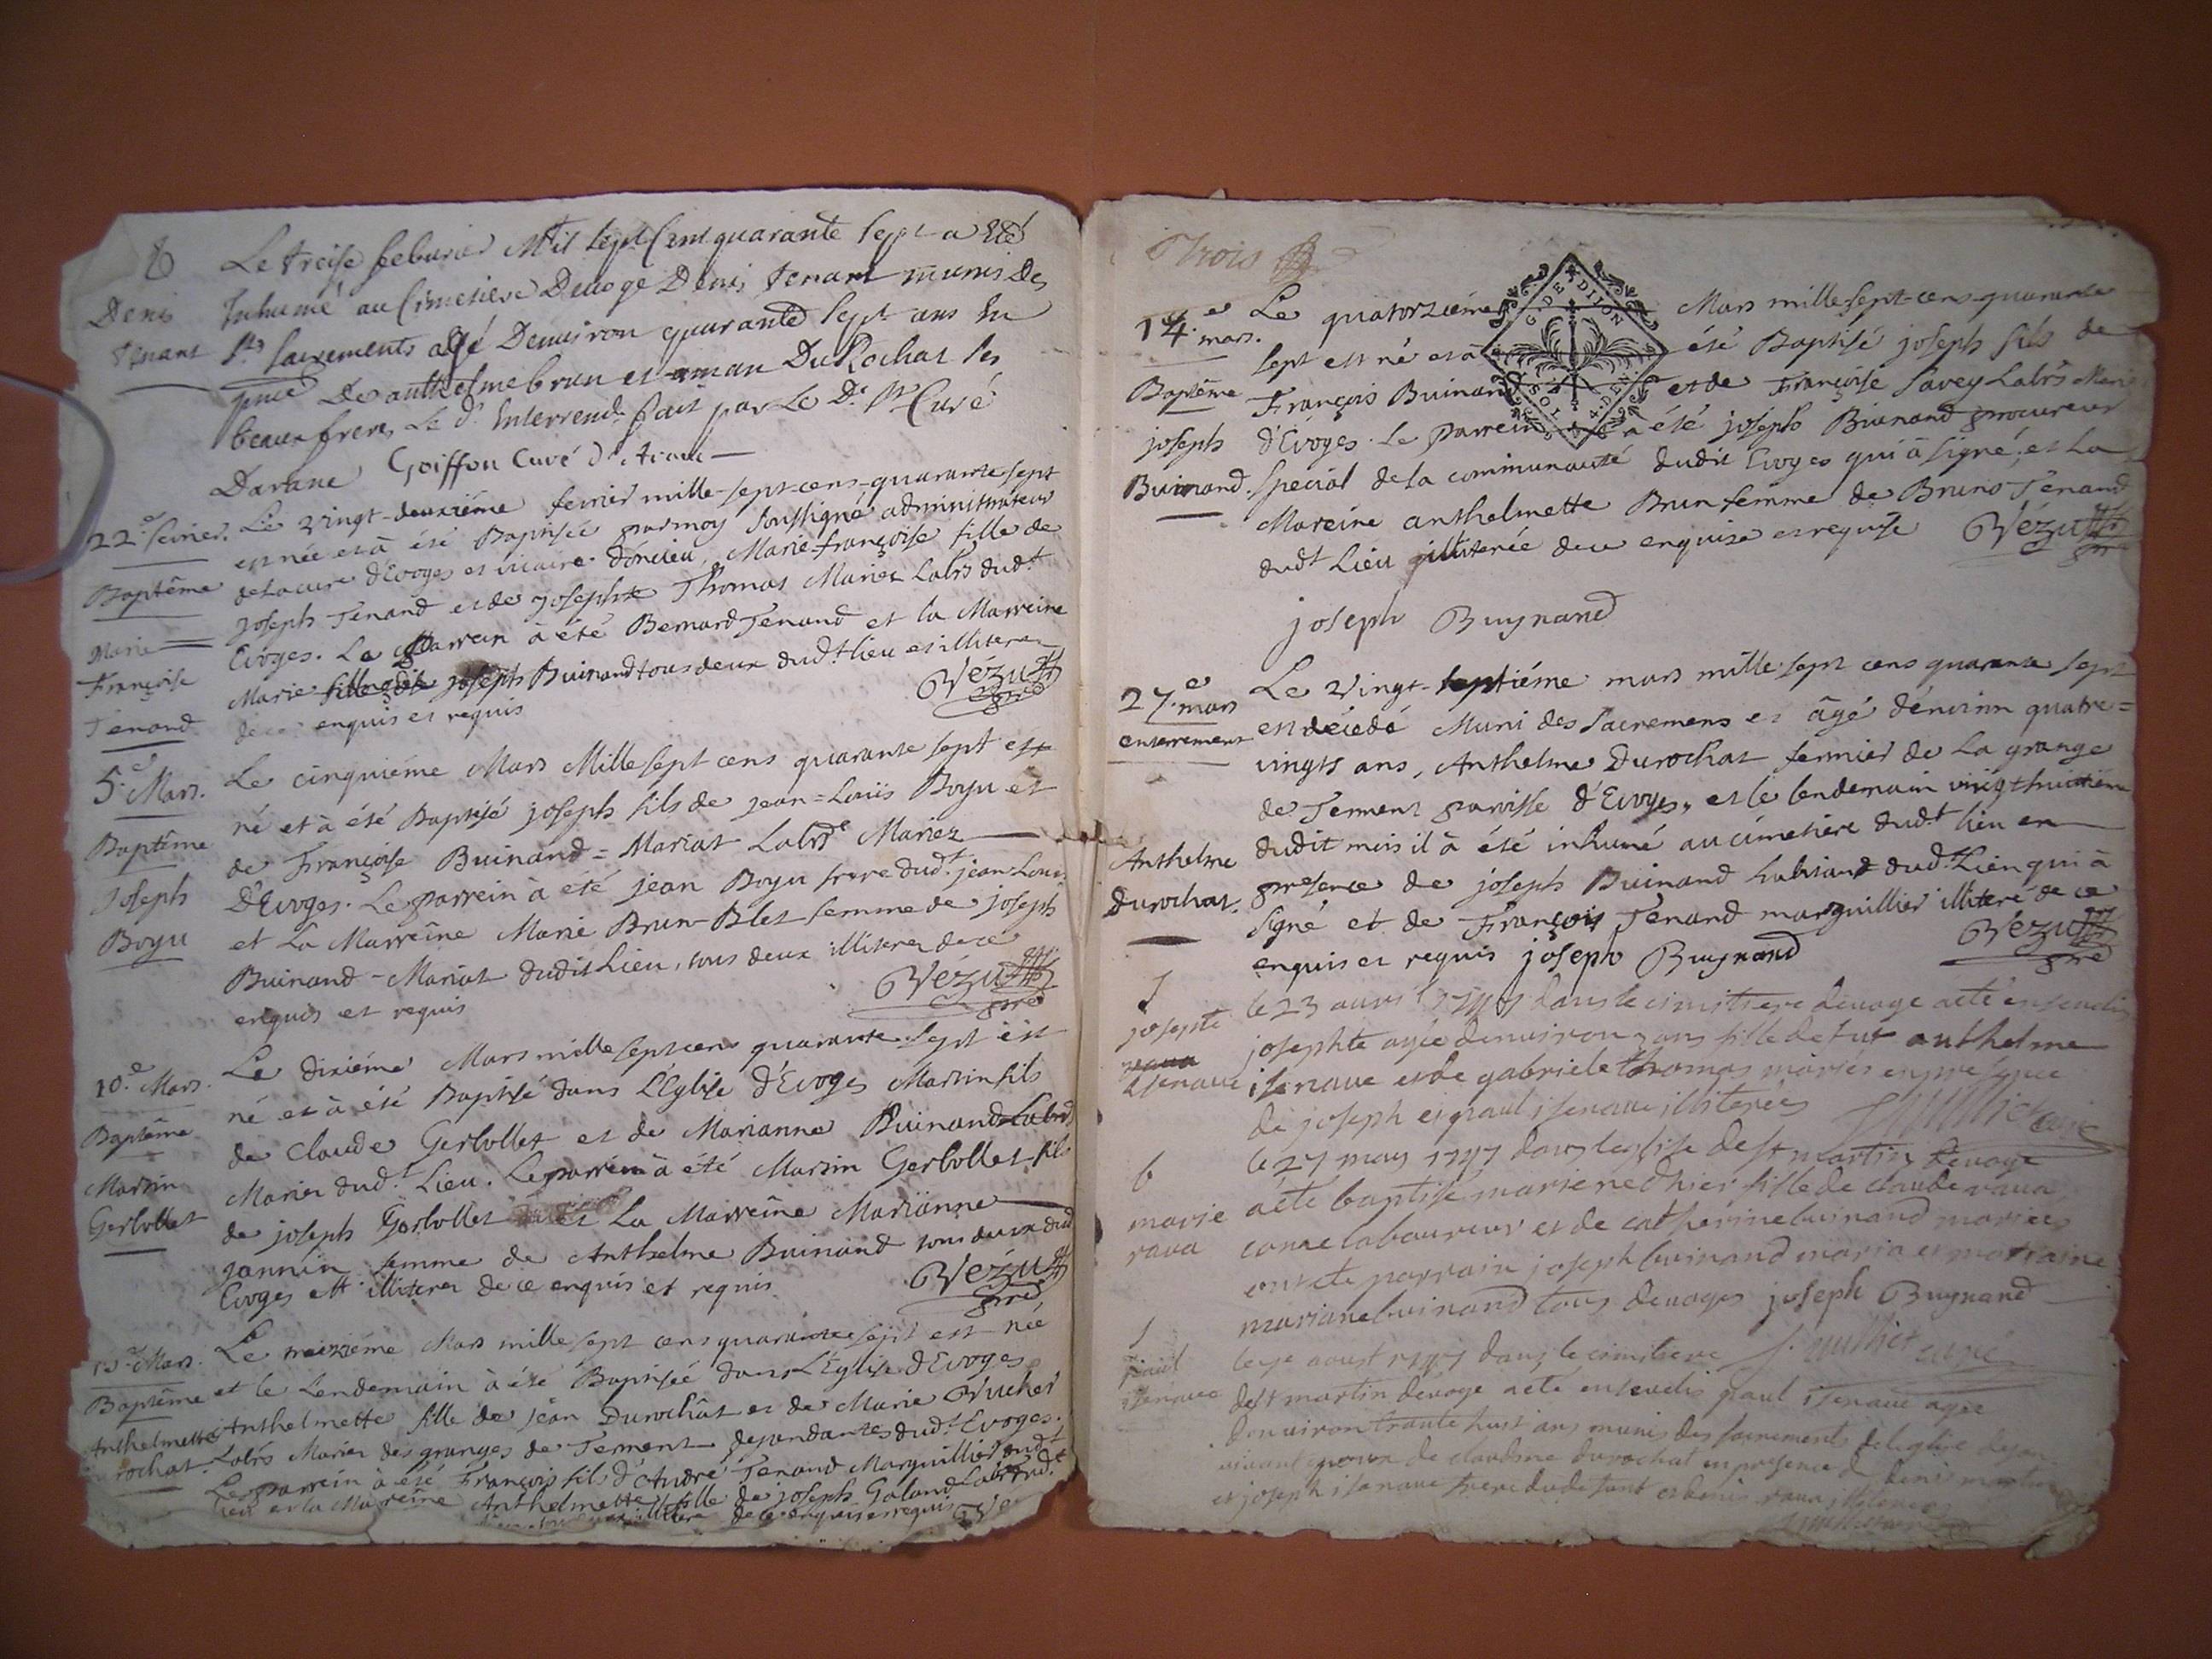 Le treise feburier Mil sept Cent quarante sept a été
Denis
tenant
Inhumé au Cimetiere Deuoge Denis tenant munis Des
Sts sacrements agé Denuiron quarante sept ans En
pnce De anthelme brun et DuRochat ses
beaux freres, Le dt Enterremt fait par Le Dt Sr Curé
Darane Goiffon Curé
22.e fevrier.
Baptême
Marie
Françoise
Tenand
Le vingt-deuxiéme fevrier mille-sept-cens-quarante sept
est née et à été Baptisée par moy soussigné administrateur
de la cure d'Evoges et vicaire d'oncieu, Marie-françoise fille de
Joseph Tenand et de Josephte Thomas Mariez Labrs dudt
Evoges. Le Parrein à été Bernard Tenand et la Marreine
Marie joseph Buinand tous deux dud.t lieu et illiterez
de ce enquis et requis
Vézu
pre
5.e Mars.
Baptême
Joseph
Boyu
Le cinquiéme Mars Mille sept cens quarante sept est
né et à été Baptisé joseph fils de jean=Loüis Boyu et
de Françoise Buinand=Mariat Labrs Mariez
D'Evoges. Le parrein à été jean Boyu frere dud.t jean Louis
et La Marreine Marie Brun-Blet femme de joseph
Buinand-Mariat dudit Lieu, tous deux illiterez de ce
enquis et requis
Vézu
pre
10.e Mars.
Baptême
Martin
Gerbollet
Le dixiéme Mars mille sept cens quarante-sept est
né et à été Baptisé dans L'Eglise d'Evoges Martin fils
de Claude Gerbollet et de Marianne Buinand Labrs
Mariez dud.t Lieu. Le parrein à été Martin Gerbollet fils
de joseph Gerbollet et La Marreine Marianne
jannin femme de Anthelme Buinand tous deux dud.
Evoges et illiterez de ce enquis et requis
Vézu
pre
Mars.
Baptême
Anthelmette
rochat.
Le treiziéme Mars mille sept cens quarante sept est née
et le Lendemain à été Baptisée dans L'Eglise d'Evoges
Anthelmette fille de jean Durochât et de Marie Vucher
Labrs Mariez des granges de Terment dependantes dud.t Evoges.
Le parrein à été François fils d'André Tenand Marguillier dudt
lieu et la Marreine Anthelmette fille de joseph Galand Labr dud.t
illitere de ce enquis et requis
Trois
14.e mars.
Baptême
joseph
Buinand.
G. DE DIJON
SOLS 4. DEN
Le quatorziéme Mars mille sept-cens-quarante
sept est né et à été Baptisé joseph fils de
François Buinand et de Françoise Savey Labrs Mariez
d'Evoges. Le parrein a été joseph Buinand procureur
special de la communauté dudit Evoges qui à signé, et La
Mareine anthelmette Brun femme de Bruno Tenand
dudt Lieu illiterée de ce enquise et requise
Vézu
pre
joseph Buynand
27.e mars
enterrement
Anthelme
Durochat.
Le vingt-septiéme mars mille sept cens quarante sept
est décédé Muni des Sacremens et âgé d'environ quatre=
vingts ans, Anthelme Durochat fermier de La grange
de Terment paroisse d'Evoges, et le lendemain vingt huitiéme
dudit mois il à été inhumé au cimetiere dud.t lieu en
presence de joseph Buinand habitant dud.t Lieu qui à
signé et de François Tenand marguillier illiteré de ce
enquis et requis joseph Buynand
Vézu
pre
josepte
isenaue
le 23 auril 1747 dans le cimitiere deuoge a eté enseuelie
josephte agée denuiron ans fille de fut anthelme
isenaue et de gabriele thomas mariés en presence
de joseph et paul isenaue illiterées
marie
raua
le 27 may 1747 dans leglise de st martin deuoge
a eté baptisé marie neé hier fille de claude raua
laboureur et de catherine buinand mariees
ont eté parrain joseph buinand et marraine
mariane buinand tous deuoges joseph Buynand
paul
isenaue
aoust 1747 dans le cimitiere curé
de st martin deuoge a eté enseuelis paul isenaue agee
denuiron trante huit ans munis des sacrements de leglise
uiuant epoux de claudine durochat en presence de denis
et joseph isenaue frere du defunt et denis raua illiterees